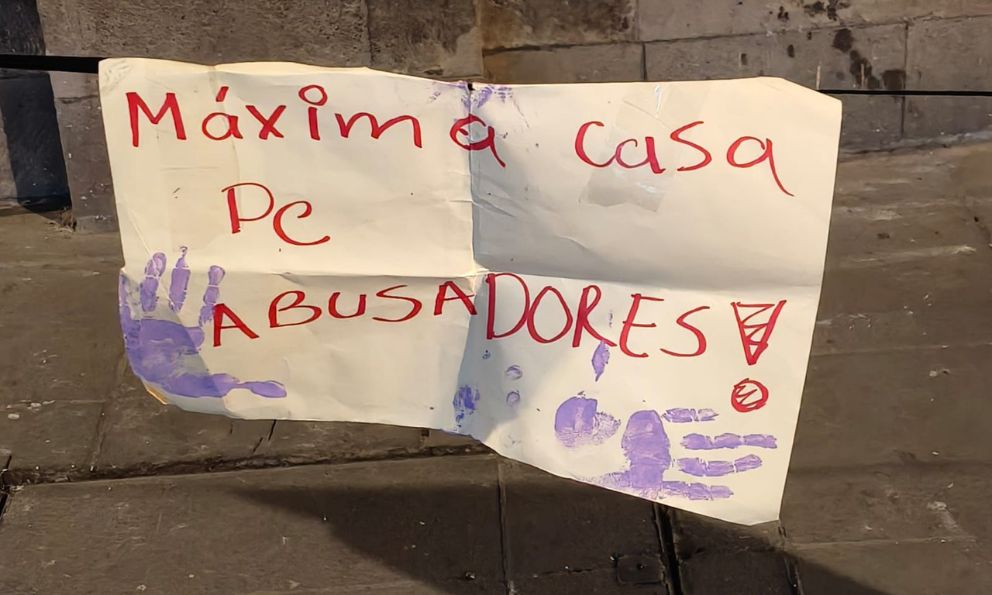 Máxima casa
PC
ABUSADORES!